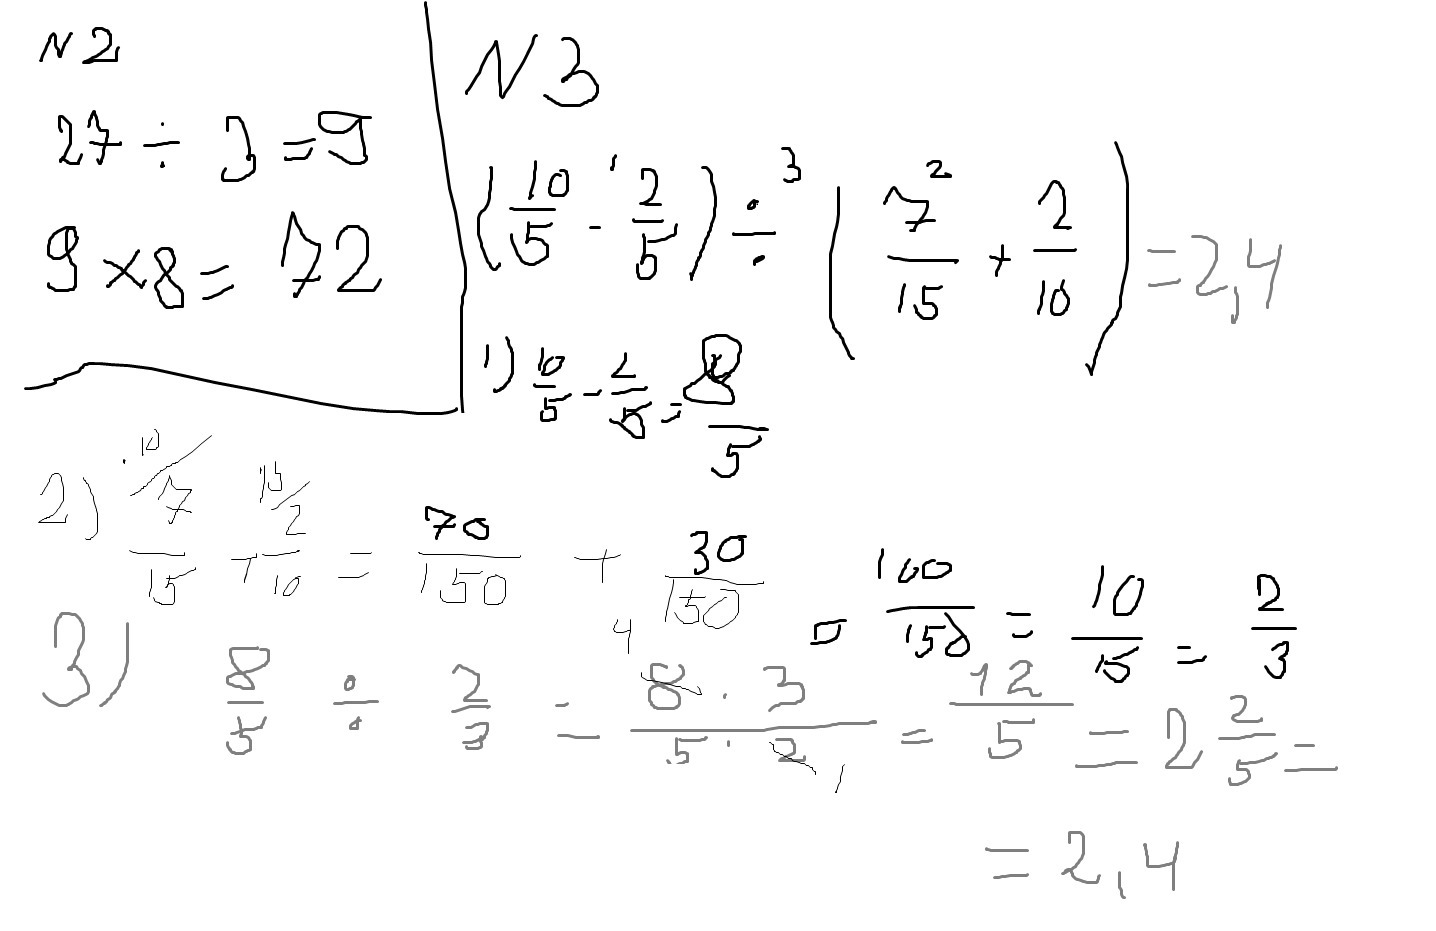 N2
27 ÷ 3 = 9
9 × 8 = 72
N3
(10/5 -¹ 2/5) ÷³ (7/15 +² 2/10) = 2,4
1) 10/5 - 2/5 = 8/5
2) ¹⁰/7/15 + ¹⁵/2/10 = 70/150 + 30/150 = 100/150 = 10/15 = 2/3
3) 8/5 ÷ 2/3 = 8⁴ · 3 / 5 · 2₁ = 12/5 = 2 2/5 =
= 2,4